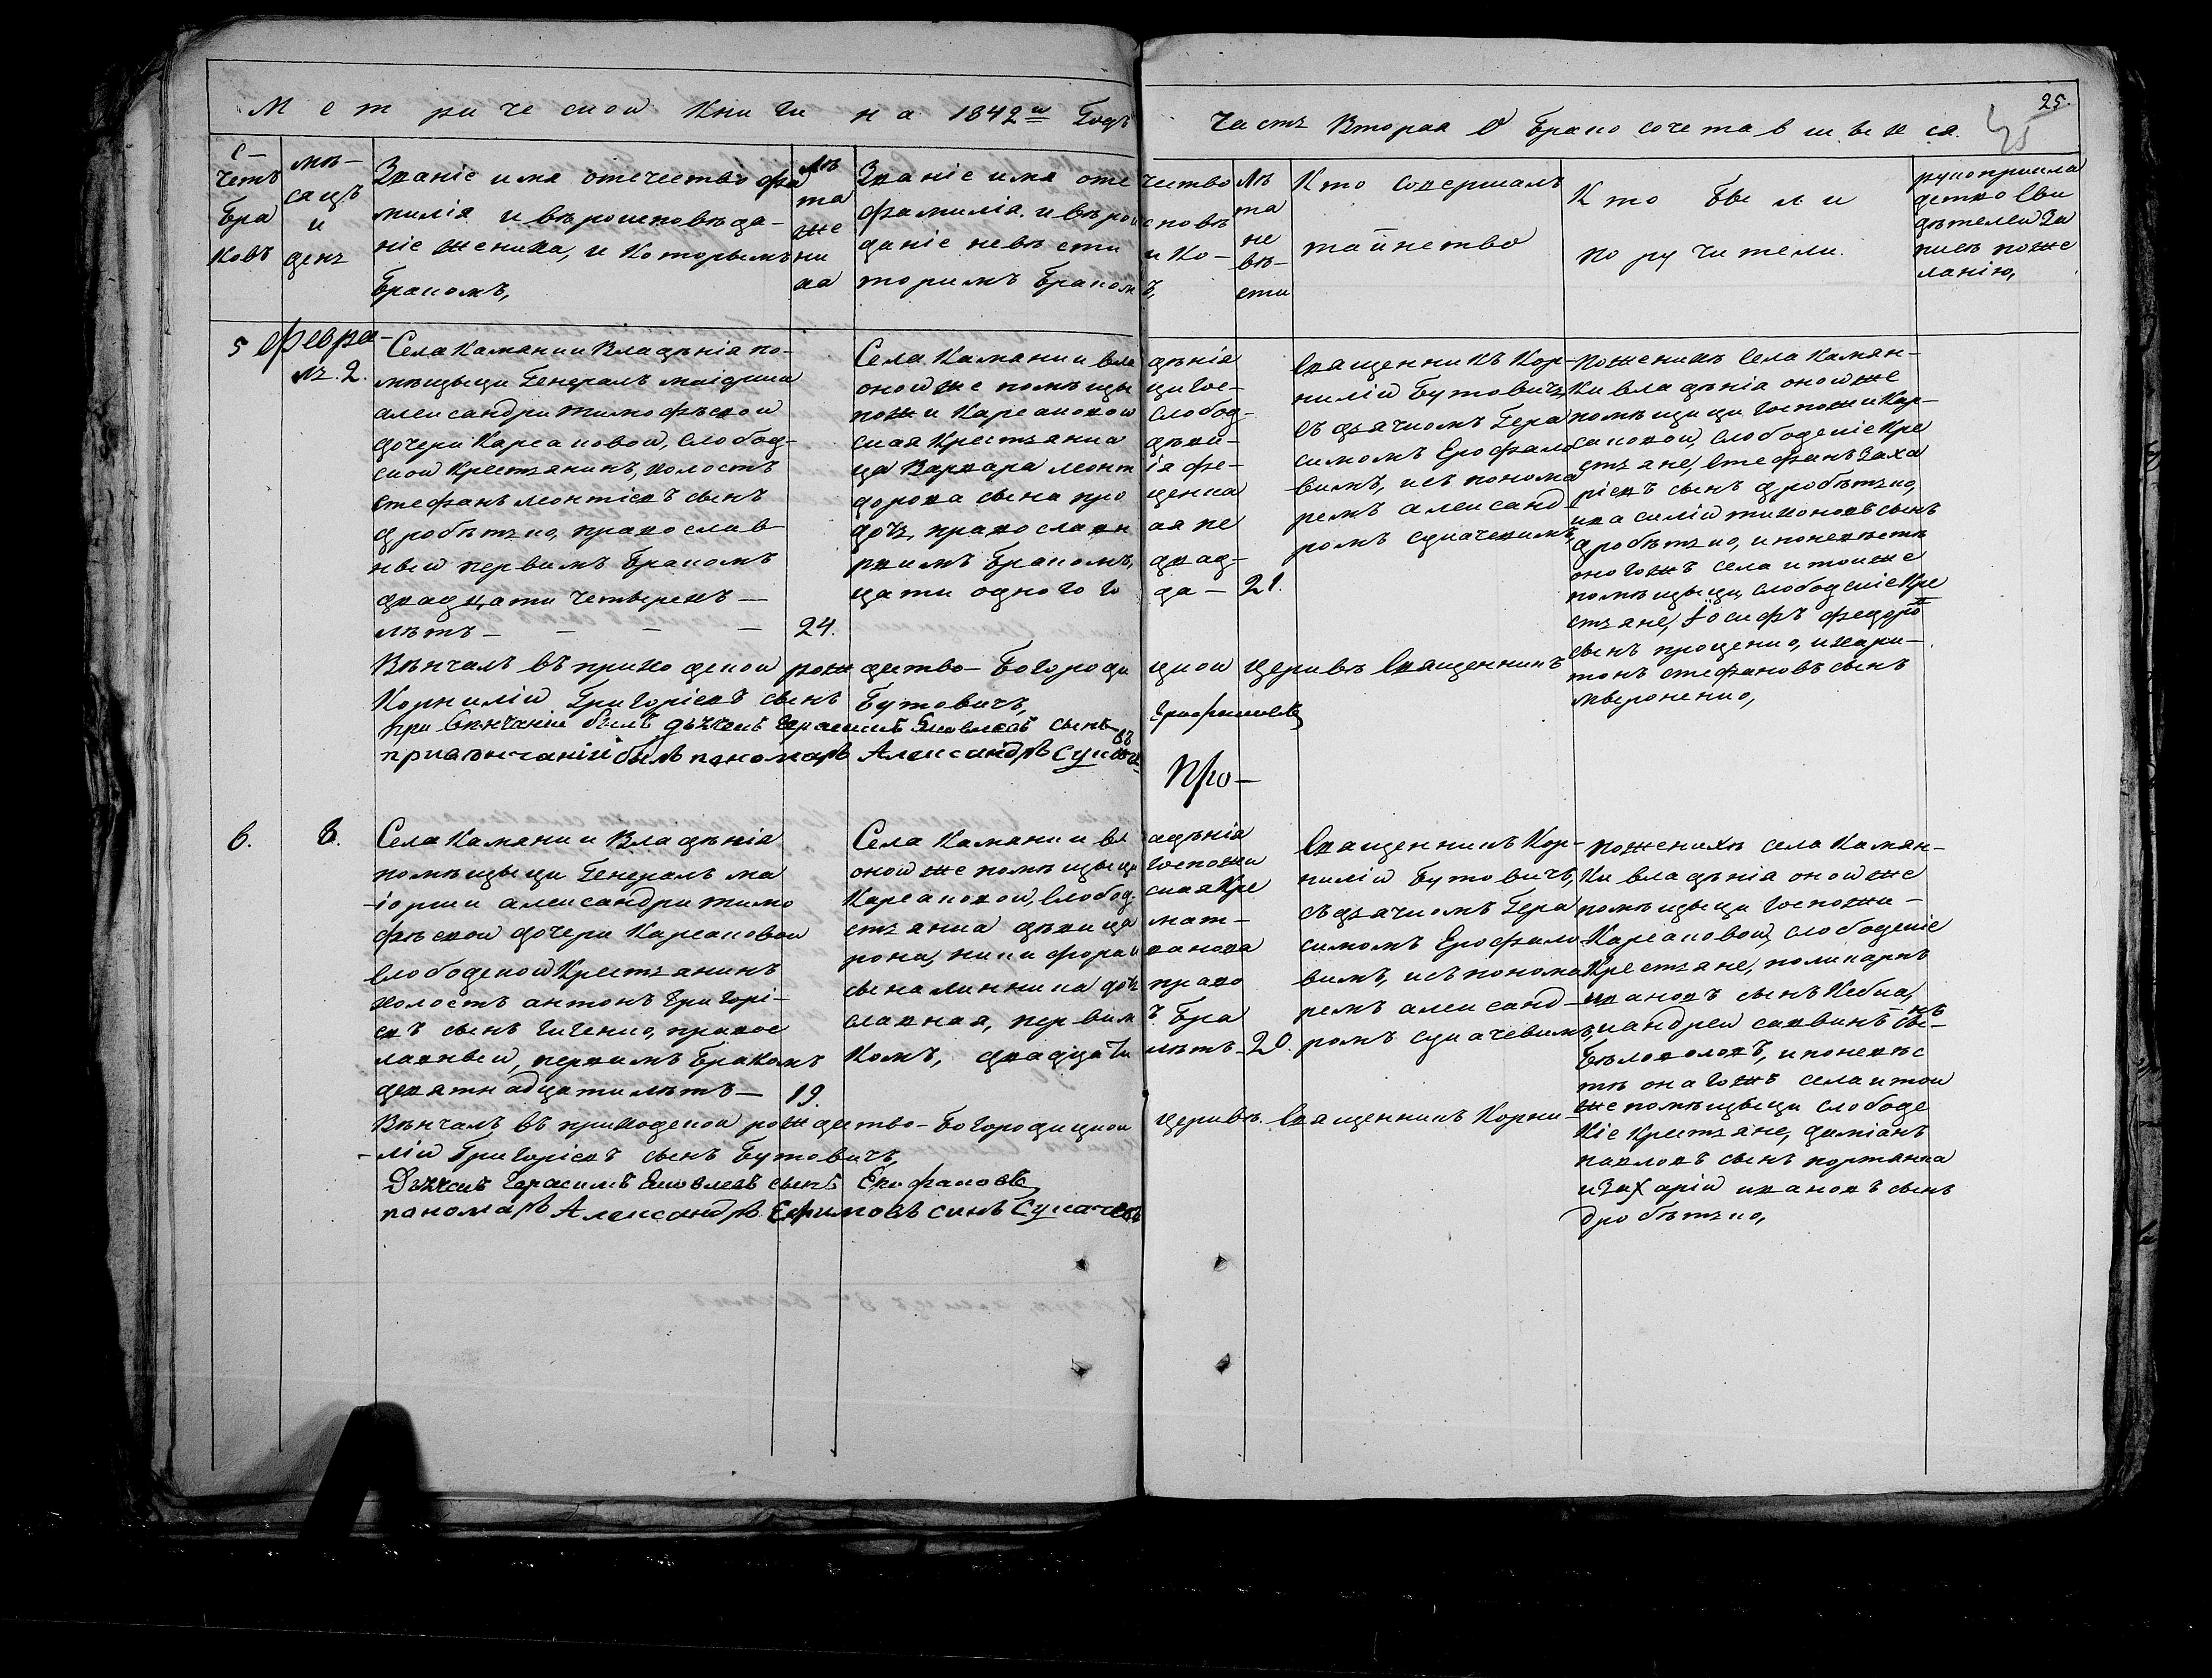 Метрической Книги на 1842й Годъ
Часть Вторая О Бракосочетавшихся.
25.
С-
четъ
Бра
ковъ
мѣ-
сяцъ
и
день
Званіе имя отечество фа
милія и вѣроисповѣда-
ніе жениха, и Которымъ
Бракомъ,
Лѣ
та
же
ни
ха
Званіе имя оте чество
фамилія. и вѣрои сповѣ
даніе невѣсти и Ко-
торимъ Браком ъ,
Лѣ
та
не
вѣ-
сти
Кто Совершалъ
таинство
Кто Были
поручители.
рукоприкла
детво Сви
дѣтелей За
пись поже
ланію,
5
Февра-
ль. 2.
Села Камянки Владѣнія по-
мѣщыци Генералъ маіорши
александри тимофѣевой
дочери Карсаковой, Слобод-
ской Крестянинъ, холостъ
стефанъ леонтіевъ сынъ
дробѣтько, православ
ный первимъ бракомъ
двадцати четырехъ —
лѣтъ — — — —
24.
Села Камянки вла дѣнія
оной же помѣщы ци Гос-
пожи Карсаковой Слобод-
ская Крестянка дѣви-
ца Варвара леонт ія фе-
дорова сына про ценка
дочь, православн ая пе
рвимъ бракомъ, двад-
цати одного го да —
21.
Священникъ Кор-
нилій Бутовичъ,
съ дьячкомъ Гера
симомъ Ерофало
вимъ, исъ понома
ремъ александ-
ромъ сукачевимъ,
Поженихѣ Села Камян-
ки владѣнія оной же
помѣщици Госпожи Кар-
саковой, Слободскіе Кре
стьяне, Стефанъ Заха
ріевъ сынъ дробѣтько,
ивасилій тихоновъ сынъ
дробѣтько, ипоневѣстѣ
оногожъ села итоиже
помѣщыци Слободскіе Кре
стьяне, Іосифъ федоро
сынъ проценко, ихари-
тонъ стефановъ сынъ
Вѣнчалъ въ приходской рождество-Богороди цкой Церквѣ Священникъ
Корнилій Григоріевъ сынъ Бутовичъ,
при вѣнчаніи былъ дьячокъ Герасимъ Яковлевъ сынъ
привѣнчаніи былъ пономарь Александръ Сукачевъ
6.
8.
Села Камянки Владѣнія
помѣщыци Генералъ ма
-іорши александри тимо
фѣевой дочери Карсаковой
слободской Крестьянинъ
холостъ антонъ григорі-
евъ сынъ гиченко, правос
лавный, первимъ Бракомъ
девятнадцатилѣтъ —
19.
Села Камянки вл адѣнія
оной же помѣщыци Госпожи
Карсаковой, Слобод ская Кре
стьянка дѣвица мат-
рона, никифора ивановa
сына линника дочь право
славная, первим ъ Бра
комъ, двадцати лѣтъ
20.
Священникъ Кор-
нилій Бутовичъ,
съ дьячкомъ Гера
симомъ Ерофало-
вимъ, исъ понома
ремъ александ-
ромъ сукачевимъ,
Поженихѣ села Камян-
ки владѣнія оной же
помѣщыци Госпожи-
Карсаковой, слободскіе
Крестьяне, поликарпъ
ивановъ сынъ Кебка,
иандрей саввинъ сы-нъ
Бѣловоловъ, ипоневѣс
тѣ онагожъ села итой
же помѣщыци слободс
кіе Крестьяне, даміанъ
павловъ сынъ портянка
иЗахарій ивановъ сынъ
дробѣтько,
Вѣнчалъ въ приходской рождество-Богородицкой Церквѣ. Священникъ Корни-
-лій Григоріевъ сынъ Бутовичъ,
Дьячокъ Герасимъ Яковлевъ сынъ
пономарь Александръ Ефимовъ синъ Сукачевъ